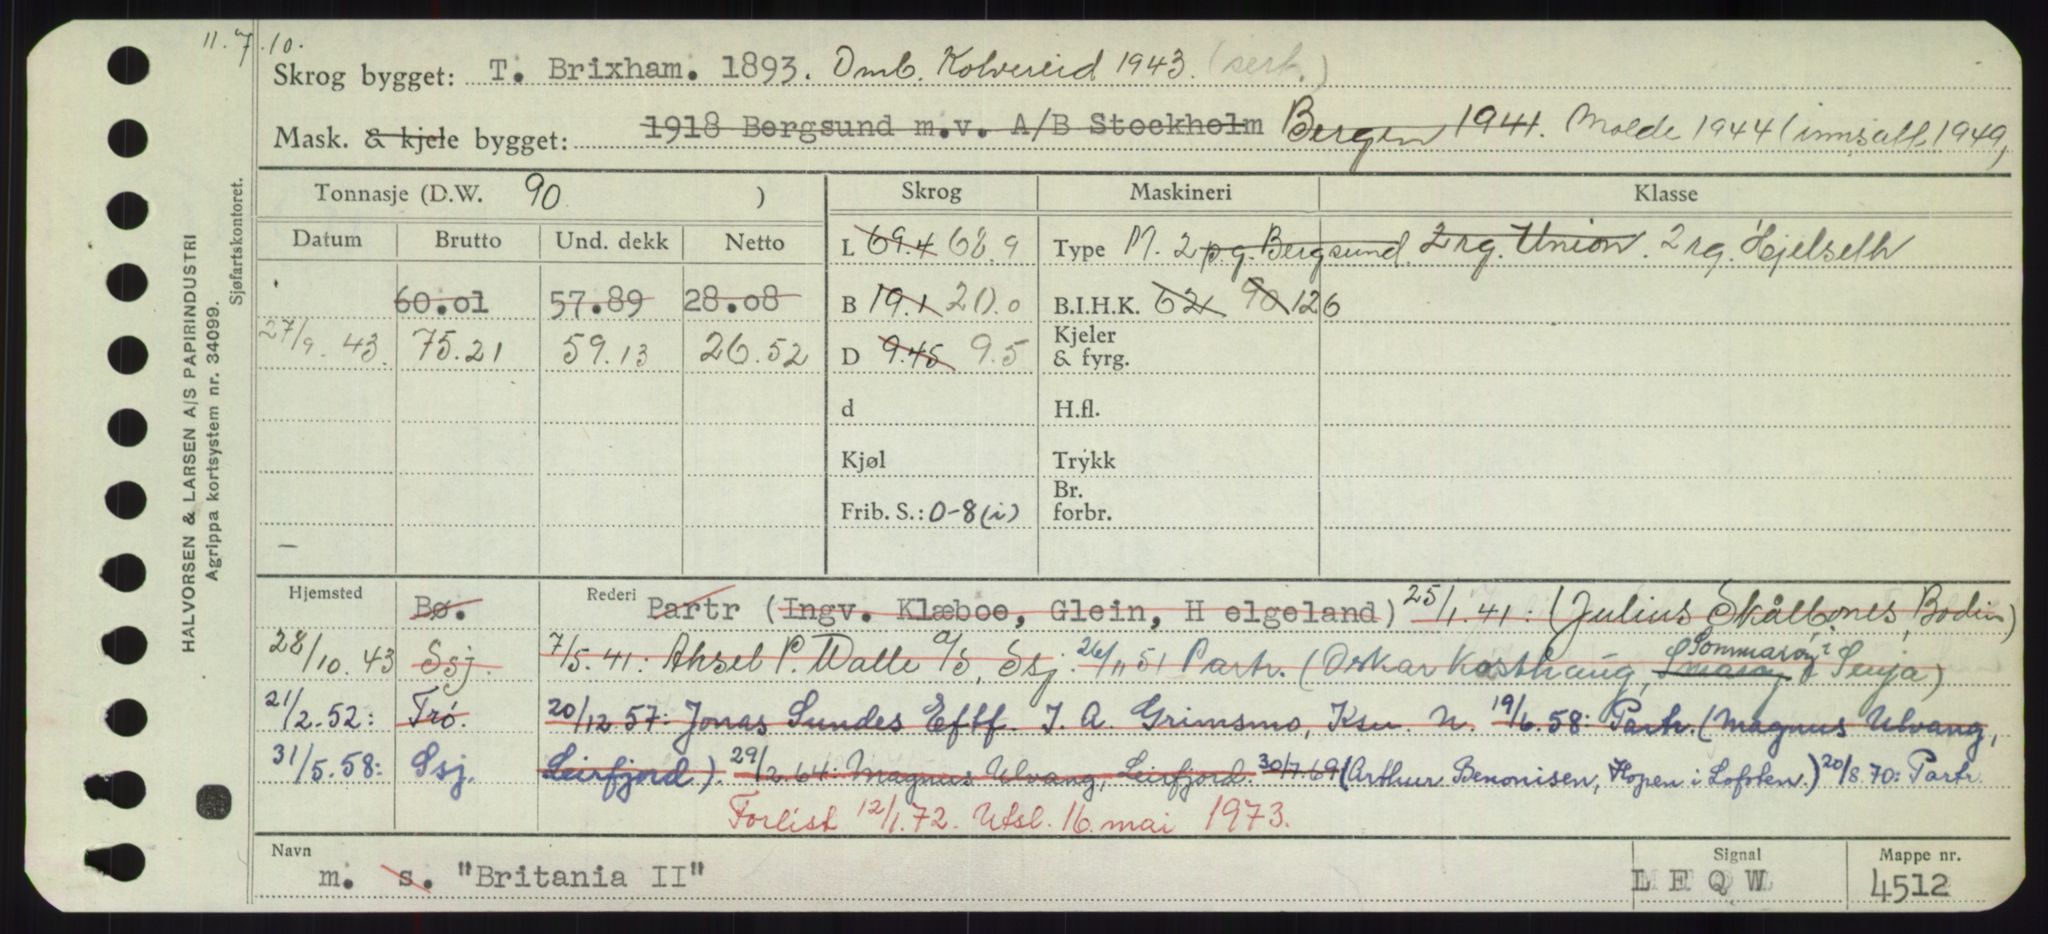 11.7.10.
Skrog bygget: T. Brixham. 1893. Omb. Kolvereid 1943. (serk.)
Mask. & kjele bygget: 1918 Bergsund m.v. A/B Stockholm Bergen 1941. Molde 1944 (innsatt 1949,
Tonnasje (D.W. 90 ) Skrog Maskineri Klasse
Datum Brutto Und. dekk Netto L 69.4 68.9 Type M. 2 p.g. Bergsund. 2 rg. Union. 2 rg. Hjelseth
60.01 57.89 28.08 B 19.1 20.0 B.I.H.K. 62 90 126
27/9. 43. 75.21 59.13 26.52 D 9.45 9.5 Kjeler & fyrg.
d H.fl.
Kjøl Trykk
Frib. S.: 0-8 (i) Br. forbr.
—
Hjemsted Bø. Rederi Partr (Ingv. Klæboe, Glein, H elgeland) 25/1. 41: (Julius Skålbones, Bodin)
28/10. 43 Ssj. 7/5. 41: Aksel P. Walle A/S, Ssj. 26/11 51 Partr. (Oskar Kasthaug, Sommarøy i Senja)
21/2. 52: Trö. 20/12 57: Jonas Sundes Eftf. I. A. Grimsmo, Ksu. N. 19/6. 58: Partr. (Magnus Ulvang,
31/5. 58: Ssj. Leirfjord). 29/2. 64: Magnus Ulvang, Leirfjord. 30/7. 69 (Arthur Benonisen, Hopen i Lofoten.) 20/8. 70: Partr.
Forlist 12/1. 72. Utsl. 16. mai 1973.
Navn m. s. "Britania II" Signal L E Q W Mappe nr. 4512
HALVORSEN & LARSEN A/S PAPIRINDUSTRI
Agrippa kortsystem nr. 34099.
Sjøfartskontoret.